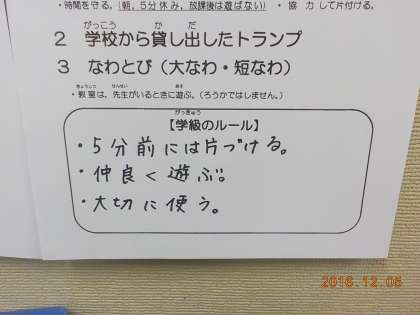 ・時間を守る。(朝、5分休み、放課後は遊ばない) ・協力して片付ける。
2 学校から貸し出したトランプ
3 なわとび(大なわ・短なわ)
・教室は、先生がいるときに遊ぶ。(ろうかではしません。)
【学級のルール】
・5分前には片づける。
・仲良く遊ぶ。
・大切に使う。
2016.12.06